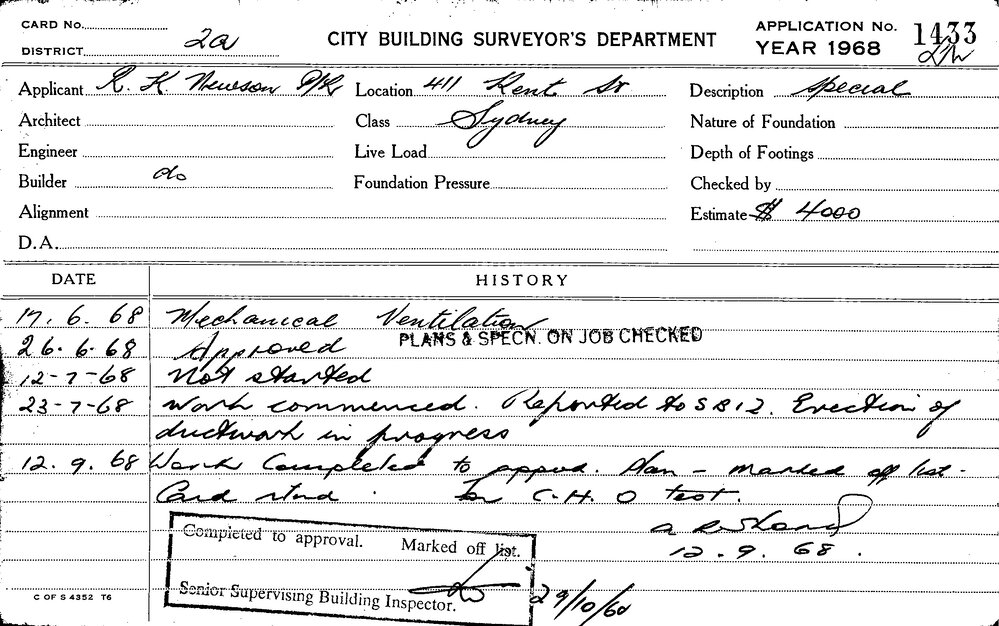 CARD No.
DISTRICT 2a
CITY BUILDING SURVEYOR'S DEPARTMENT
APPLICATION No. 1433
YEAR 1968
Applicant R. K. Newson P/L Location 411 Kent St Description Special
Architect Class Sydney Nature of Foundation
Engineer Live Load Depth of Footings
Builder do Foundation Pressure Checked by
Alignment Estimate $ 4000
D.A.
DATE HISTORY
17. 6. 68 Mechanical Ventilation
PLANS & SPECN. ON JOB CHECKED
26. 6. 68 Approved
12-7-68 Not started
23-7-68 Work commenced. Reported to SBI2. Erection of
ductwork in progress
12. 9. 68 Work Completed to approd. Plan - marked off list -
Card for C.H.O test.
12. 9. 68.
Completed to approval. Marked off list.
Senior Supervising Building Inspector.
29/10/68
C OF S 4352 T6